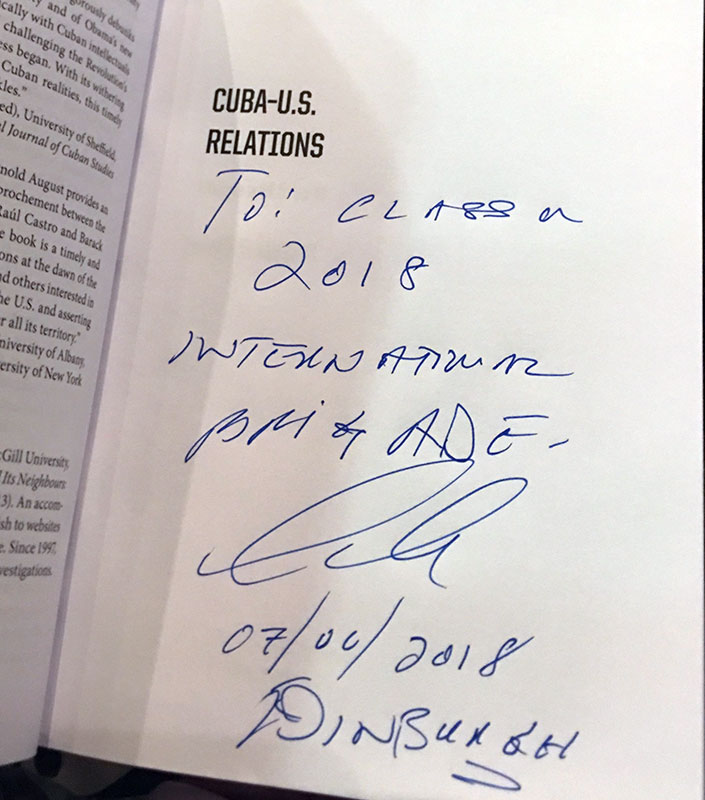 gorously debunks
y and of Obama's new
ically with Cuban intellectuals
challenging the Revolution's
ess began. With its withering
Cuban realities, this timely
kles."
ed), University of Sheffield,
l Journal of Cuban Studies
nold August provides an
prochement between the
Raúl Castro and Barack
e book is a timely and
ons at the dawn of the
nd others interested in
he U.S. and asserting
r all its territory."
niversity of Albany,
ersity of New York
Gill University,
Its Neighbours
3). An accom-
sh to websites
e. Since 1997,
vestigations.
CUBA–U.S.
RELATIONS
To: CLASS
2018
INTERNATIONAL
BRIGADE-
07/06/2018
EDINBURGH